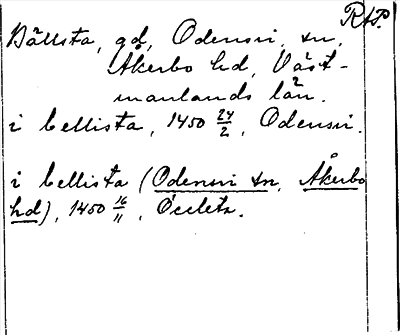 RAP.
Bällsta, gd, Odensvi, sn,
Åkerbo hd, Väst-
manlands län.
i bellista, 1450 24/2, Odensvi.
i bellista (Odensvi sn, Åkerbo
hd), 1450 16/11,